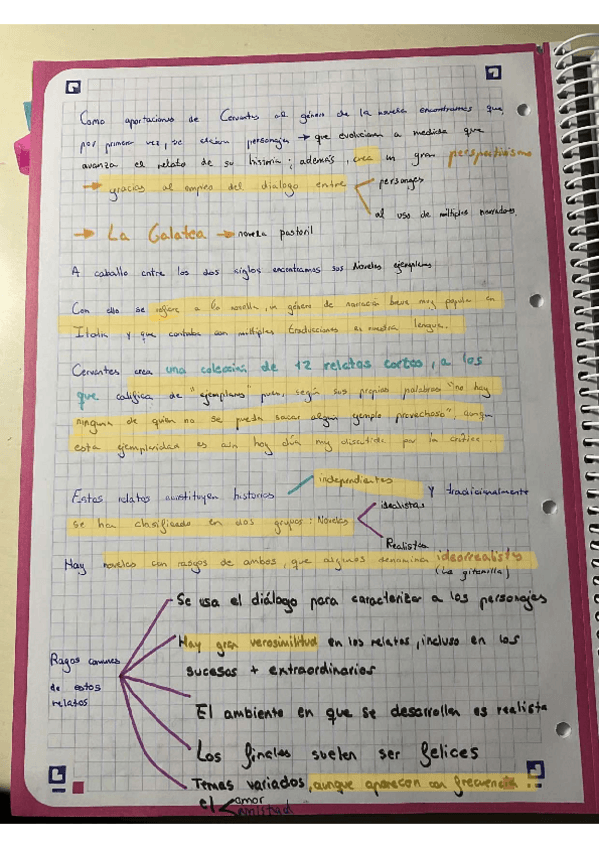 Como aportaciones de Cervantes al género de la novela encontramos que,
por primera vez, se crean personajes → que evolucionan a medida que
avanza el relato de su historia; además, crea un gran perspectivismo
→ gracias al empleo del dialogo entre personajes
al uso de múltiples narradores
→ La Galatea → novela pastoril
A caballo entre los dos siglos encontramos sus Novelas ejemplares
Con ello se refiere a la novella, un género de narración breve muy popular en
Italia y que contaba con multiples traducciones en nuestra lengua.
Cervantes crea una colección de 12 relatos cortos, a los
que califica de "ejemplares" pues, según sus propias palabras "no hay
ninguna de quien no se pueda sacar algún ejemplo provechoso", aunque
esta ejemplaridad es aún hoy día muy discutida por la crítica.
Estos relatos constituyen historias independientes y tradicionalmente
se ha clasificado en dos grupos: Novelas idealistas
Realistas
Hay novelas con rasgos de ambos, que algunos denomina ideorrealista
(La gitanilla)
Se usa el diálogo para caracterizar a los personajes
Hay gran verosimilitud en los relatos, incluso en los
sucesos + extraordinarios
Ragos comunes
de estos
relatos
El ambiente en que se desarrollan es realista
Los finales suelen ser felices
Temas variados, aunque aparecen con frecuencia
el amor
amistad